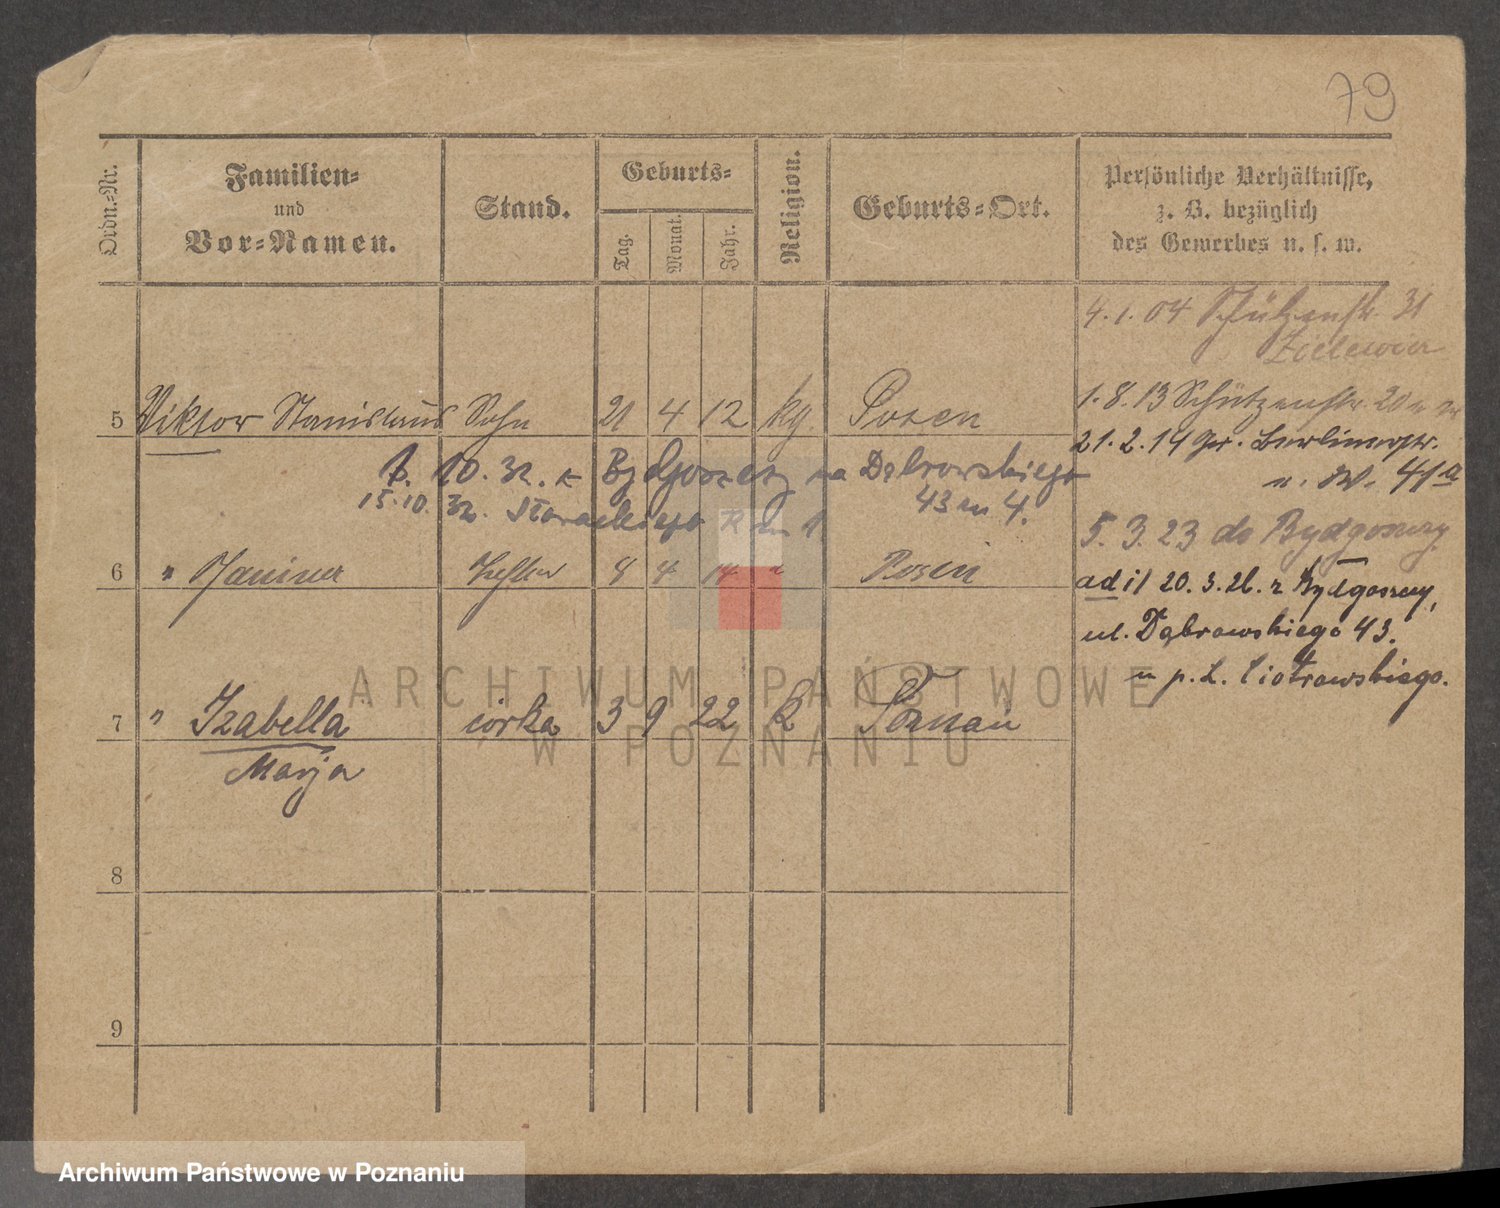 79
Ordn.-Nr.
Familien-
und
Vor-Namen.
Stand.
Geburts-
Tag.
Monat.
Jahr.
Religion.
Geburts-Ort.
Persönliche Verhältnisse,
z. B. bezüglich
des Gewerbes u. s. w.
4. 1. 04 Schützenstr. 31
5 Viktor Stanislaus Sohn 21 4 12 kg. Posen
1. 8. 13 Schützenstr. 20
21. 2. 14 Berlinerstr.
n. W. 41a
1. 10. 32. z Bydgoszczy na Dąbrowskiego
43 m 4.
15. 10. 32. Słowackiego
5. 3. 23 do Bydgoszczy
6 " Janina Tochter 8 4 14 " Posen
ad 1/ 20. 3. 26. z Bydgoszczy,
ul. Dąbrowskiego 43.
u p. L. Piotrowskiego.
7 " Izabella córka 3 9 22 k. Poznań
Marja
8
9
ARCHIWUM PAŃSTWOWE
W POZNANIU
Archiwum Państwowe w Poznaniu